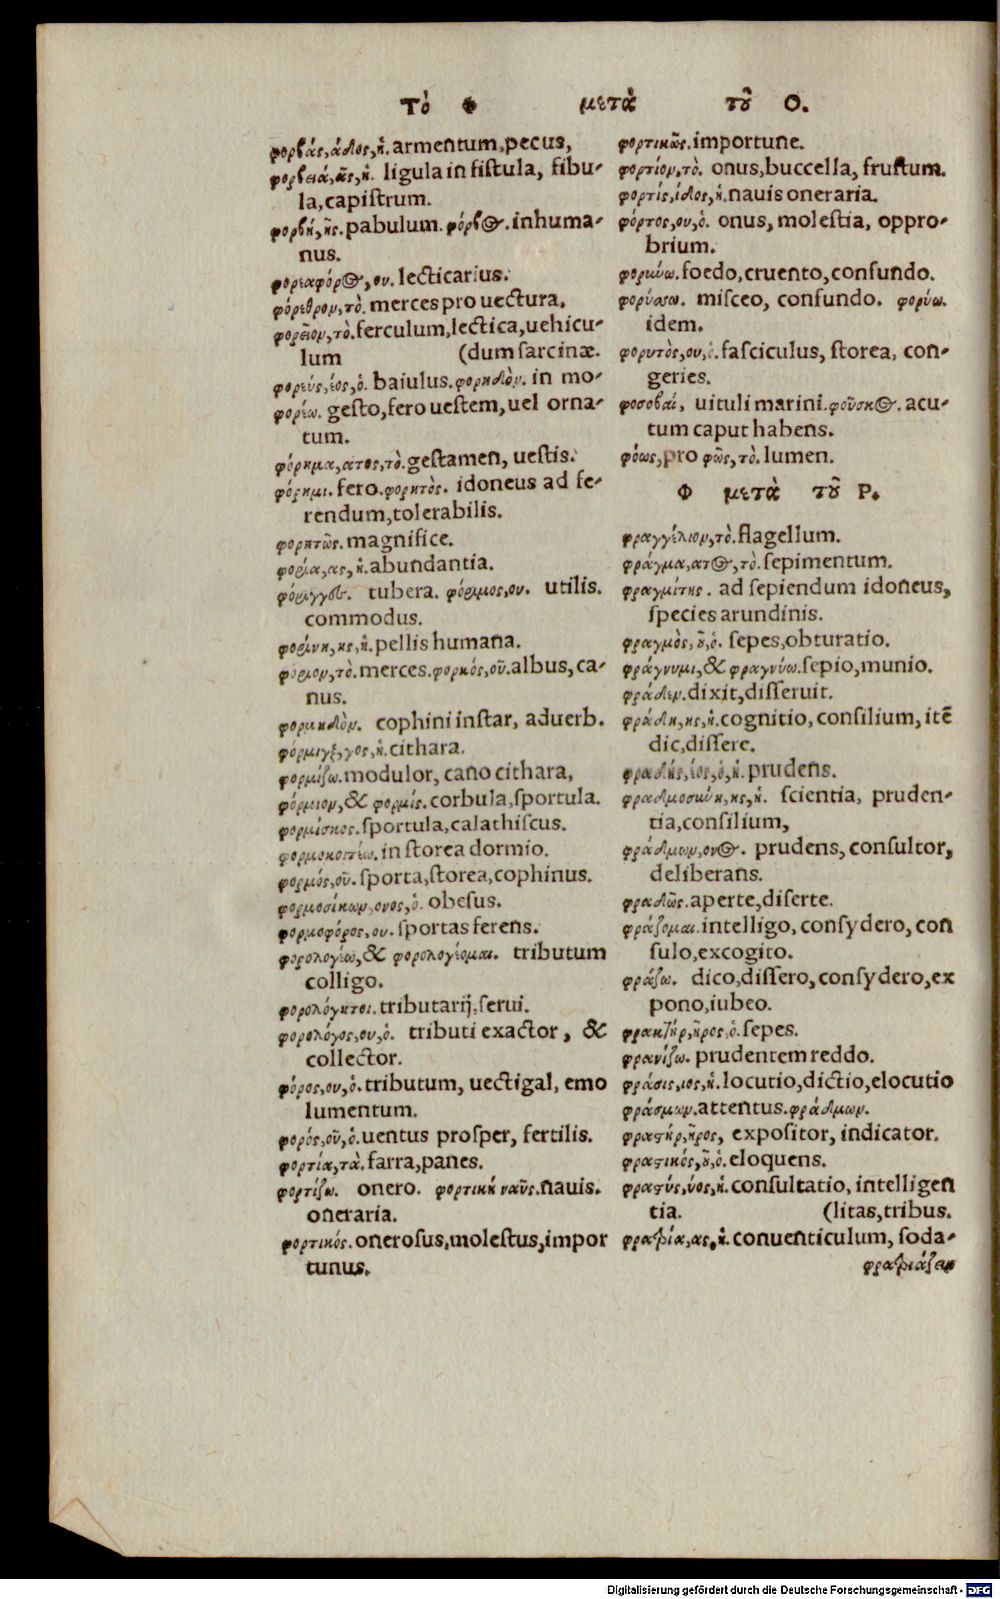 Τὸ Φ μετὰ τοῦ Ο.
φορβάς,άδος,ἡ. armentum,pecus,
φορβειά,ᾶς,ἡ. ligula in fistula, fibu-
la,capistrum.
φορβή,ῆς.pabulum. φόρβος.inhuma-
nus.
φορεαφόρος,ου.lecticarius.
φόρεθρον,τὸ.merces pro uectura,
φορεῖον,τὸ.ferculum,lectica,uehicu-
lum (dum sarcinæ.
φορεύς,έος,ὁ. baiulus.φορηδὸν. in mo-
φορέω. gesto,fero uestem,uel orna-
tum.
φόρημα,ατος,τὸ.gestamen, uestis.
φόρημι.fero.φορητὸς. idoneus ad fe-
rendum,tolerabilis.
φορητῶς.magnifice.
φορία,ας,ἡ.abundantia.
tubera. φόριμος,ου. utilis.
commodus.
φορίνη,ης,ἡ.pellis humana.
φόριον,τὸ.merces.φορκός,οῦ.albus,ca-
nus.
φορμηδὸν. cophini instar, aduerb.
φόρμιγξ,γος,ἡ.cithara.
φορμίζω.modulor, cano cithara,
φόρμιον,& φορμίς.corbula,sportula.
φορμίσκος.sportula,calathiscus.
φορμοκοιτέω.in storea dormio.
φορμός,οῦ.sporta,storea,cophinus.
φορμοσίκων,ονος,ὁ. obesus.
φορμοφόρος,ου.sportas ferens.
φορολογέω,& φορολογέομαι. tributum
colligo.
φορολόγητοι.tributarij,serui.
φορολόγος,ου,ὁ. tributi exactor, &
collector.
φόρος,ου,ὁ.tributum, uectigal, emo
lumentum.
φορός,οῦ,ὁ.uentus prosper, fertilis.
φορτία,τὰ.farra,panes.
φορτίζω. onero. φορτικὴ ναῦς.nauis.
oneraria.
φορτικός.onerosus,molestus,impor
tunus.
φορτικῶς.importune.
φορτίον,τὸ. onus,buccella, frustum.
φορτίς,ίδος,ἡ.nauis oneraria.
φόρτος,ου,ὁ. onus, molestia, oppro-
brium.
φορκύω.foedo,cruento,confundo.
φορύσσω. misceo, confundo. φορύω.
idem.
φορυτὸς,ου,ὁ.fasciculus, storea, con-
geries.
φοσοβαί, uituli marini.φοῦσκος. acu-
tum caput habens.
φόως,pro φῶς,τὸ.lumen.
Φ μετὰ τοῦ Ρ.
φραγγέλιον,τὸ.flagellum.
φράγμα,ατος,τὸ.sepimentum.
φραγμίτης. ad sepiendum idoneus,
species arundinis.
φραγμὸς,οῦ,ὁ. sepes,obturatio.
φράγνυμι,& φραγνύω.sepio,munio.
φράδεν.dixit,disseruit.
φράδη,ης,ἡ.cognitio, consilium, itē
dic,dissere.
φραδής,έος,ὁ,ἡ.prudens.
φραδμοσύνη,ης,ἡ. scientia, pruden-
tia,consilium,
φράδμων,ονος. prudens, consultor,
deliberans.
φραδῶς.aperte,diserte.
φράζομαι.intelligo, consydero, con
sulo,excogito.
φράζω. dico,dissero,consydero,ex
pono,iubeo.
φρακτήρ,ῆρος,ὁ.sepes.
φρανίζω. prudentem reddo.
φράσις,ιος,ἡ.locutio,dictio,elocutio
φράσμων.attentus.φράδμων.
φραστήρ,ῆρος, expositor, indicator.
φραστικός,οῦ,ὁ.eloquens.
φραστύς,ύος,ἡ.consultatio, intelligen
tia. (litas,tribus.
φρατρία,ας,ἡ.conuenticulum, soda-
φρατριάζειν
Digitalisierung gefördert durch die Deutsche Forschungsgemeinschaft - DFG